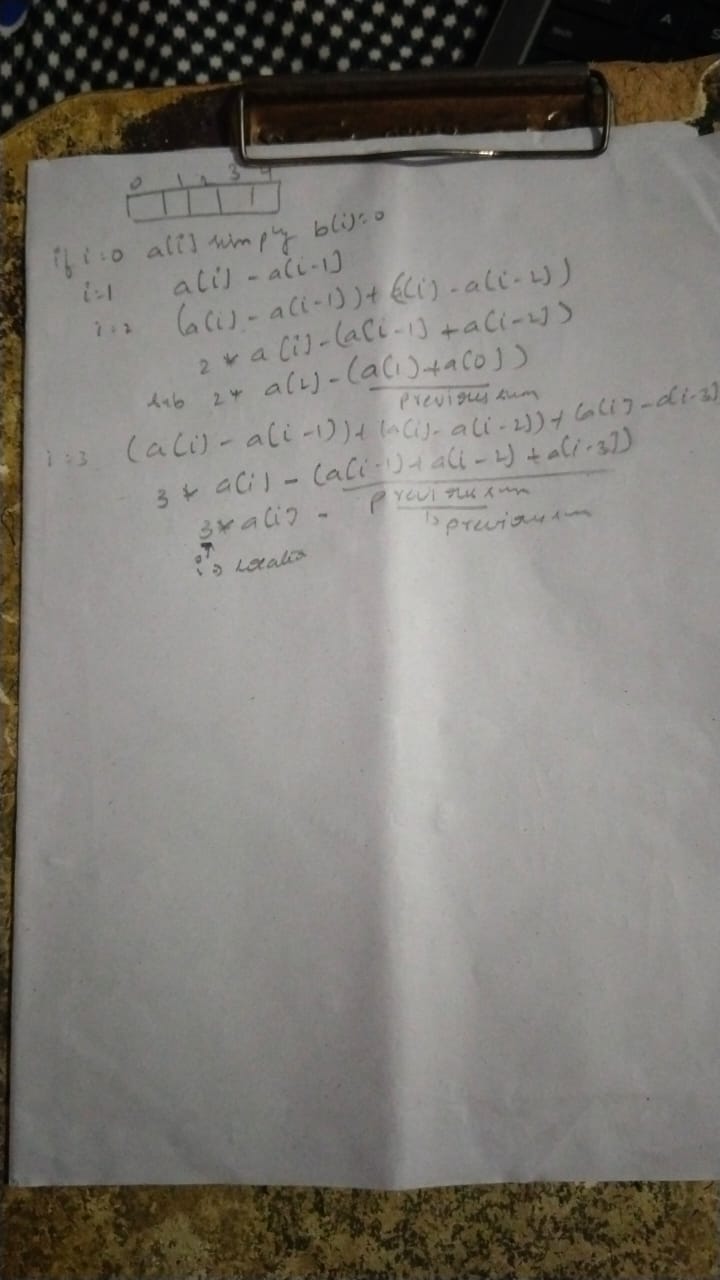 0 1 2 3 4
if i=0 a[i] simply b[i]=0
i=1 a[i] - a[i-1]
i=2 (a[i] - a[i-1]) + (a[i] - a[i-2])
2 * a[i] - (a[i-1] + a[i-2])
sub 2* a[2] - (a[1] + a[0])
previous sum
i=3 (a[i] - a[i-1]) + (a[i] - a[i-2]) + (a[i] - a[i-3]
3 * a[i] - (a[i-1] + a[i-2] + a[i-3])
previous sum
3* a[i] -
previous sum
i